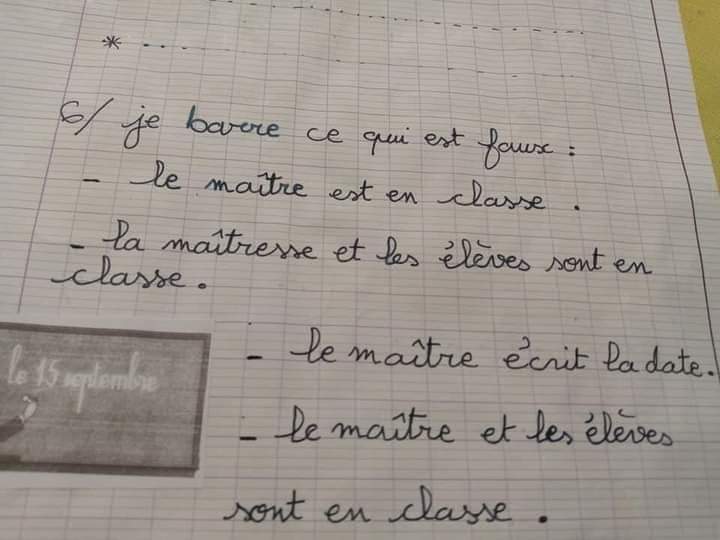 * ...
6/ je barre ce qui est faux :
- le maître est en classe .
- la maîtresse et les élèves sont en
classe .
le 15 septembre
- le maître écrit la date .
- le maître et les élèves
sont en classe .